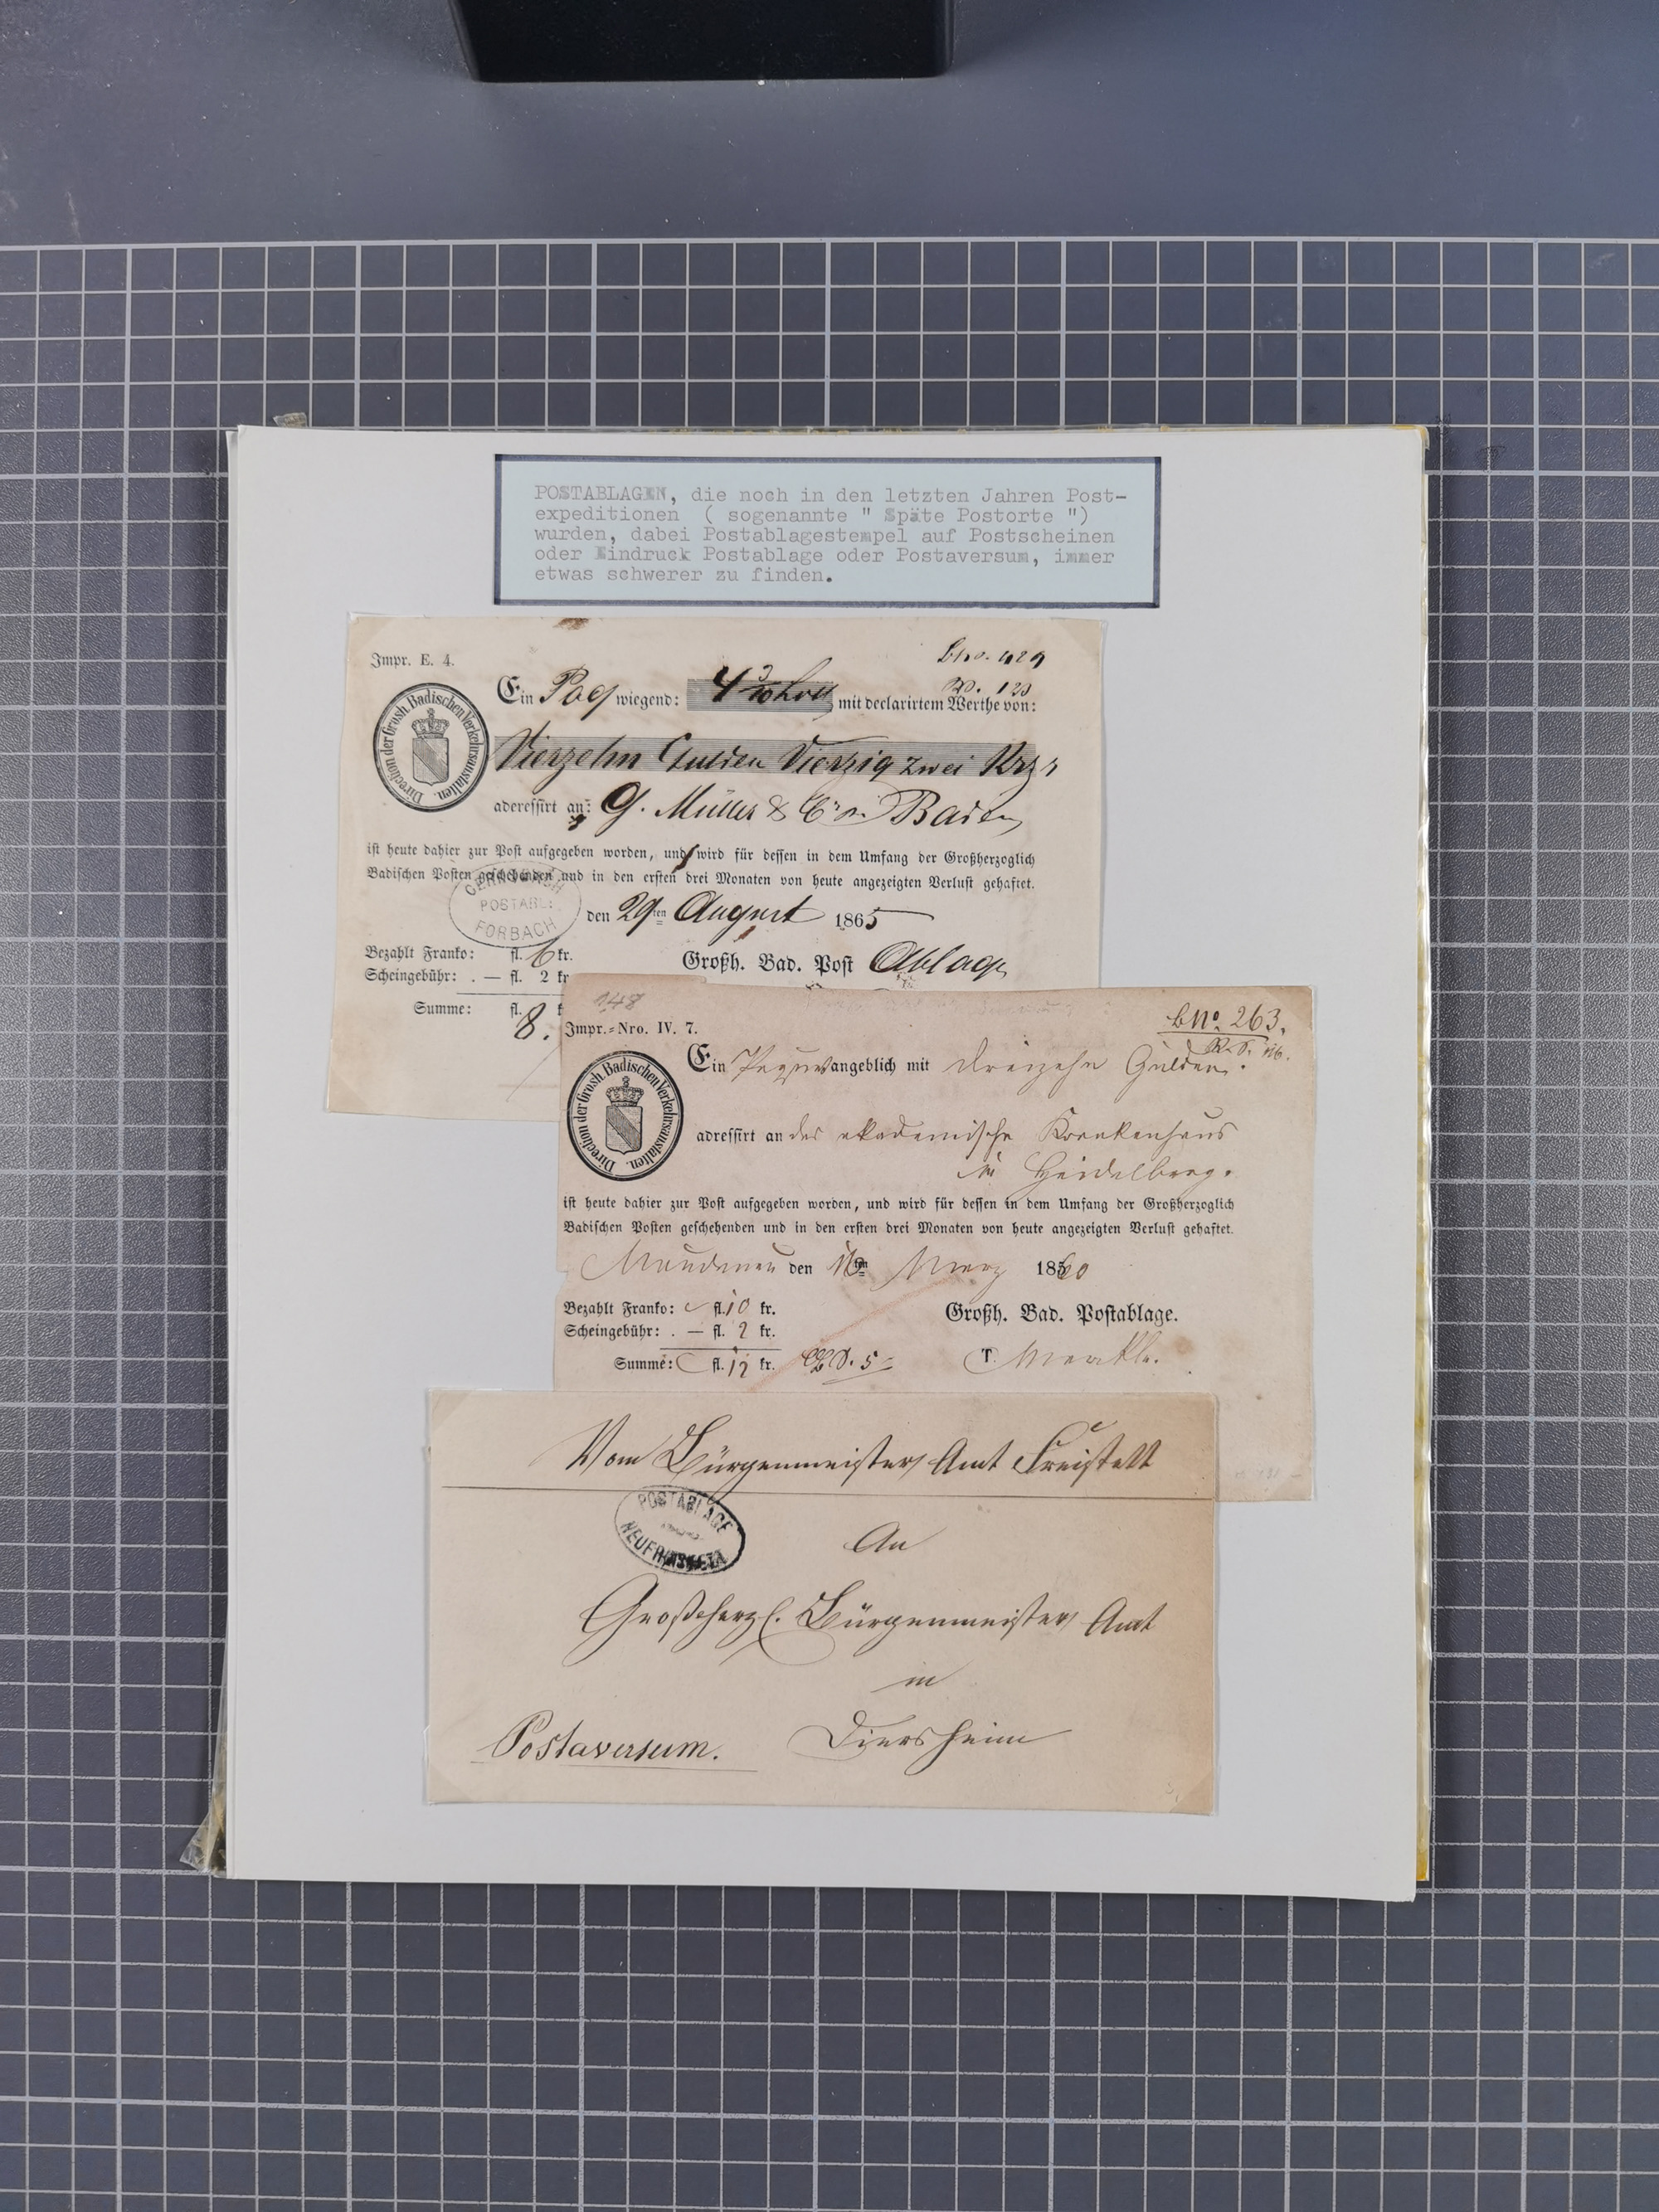 POSTABLAGEN, die noch in den letzten Jahren Post-
expeditionen ( sogenannte " Späte Postorte ")
wurden, dabei Postablagestempel auf Postscheinen
oder Eindruck Postablage oder Postaversum, immer
etwas schwerer zu finden.
Impr. E. 4.
Ein Paq wiegend: mit declarirtem Werthe von:
Direction der Grosh. Badischen Verkehrsanstalten.
Vierzehn Gulden Vierzig zwei Krz
aderessirt an: G. Müller & Baden
ist heute dahier zur Post aufgegeben worden, und wird für dessen in dem Umfang der Großherzoglich
Badischen Posten geschehenden und in den ersten drei Monaten von heute angezeigten Verlust gehaftet.
POSTABL:
FORBACH
den 29ten August 1865
Bezahlt Franko: fl. 6 kr.
Großh. Bad. Post Ablage
Scheingebühr: . — fl. 2 kr
Summe: fl. 8.
148
Impr.=Nro. IV. 7.
bNo. 263.
Ein angeblich mit dreizehn Gulden.
Direction der Grosh. Badischen Verkehrsanstalten.
adressirt an das akademische Krankenhaus
in Heidelberg.
ist heute dahier zur Post aufgegeben worden, und wird für dessen in dem Umfang der Großherzoglich
Badischen Posten geschehenden und in den ersten drei Monaten von heute angezeigten Verlust gehaftet.
den März 1860
Bezahlt Franko: fl. 10 kr.
Großh. Bad. Postablage.
Scheingebühr: . — fl. 2 kr.
Summe: fl. 12 kr.
Vom Bürgermeister Amt Freistett
POSTABLAGE
An
Großherzl. Bürgermeister Amt
in
Diersheim
Postaversum.